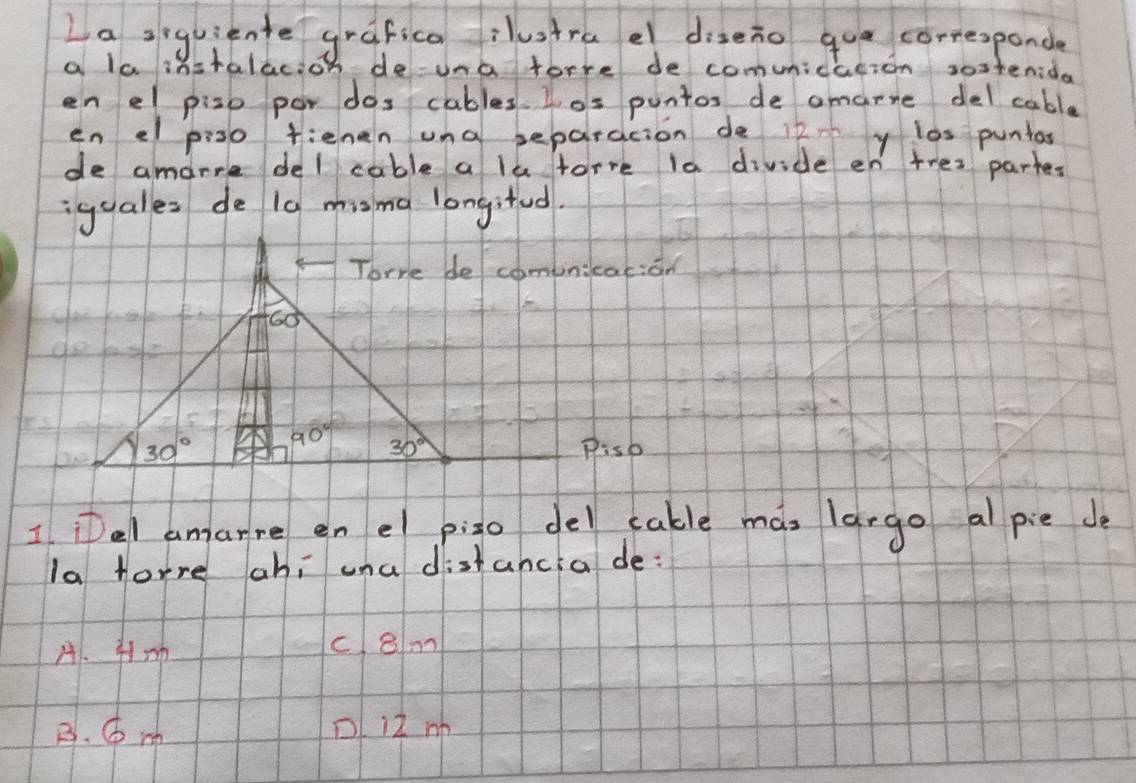 La siguiente gráfica ilustra el diseño que corresponde
a la instalación de una torre de comunicación sostenida
en el piso por dos cables. Los puntos de amarre del cable
en el piso tienen una separación de 12m y los puntos
de amarre del cable a la torre la divide en tres partes
iguales de la misma longitud.
← Torre de comunicación
60
30° 90° 30° Piso
1. Del amarre en el piso del cable más largo al pie de
la torre ahí una distancia de:
A. 4m C. 8m
B. 6m D. 12 m